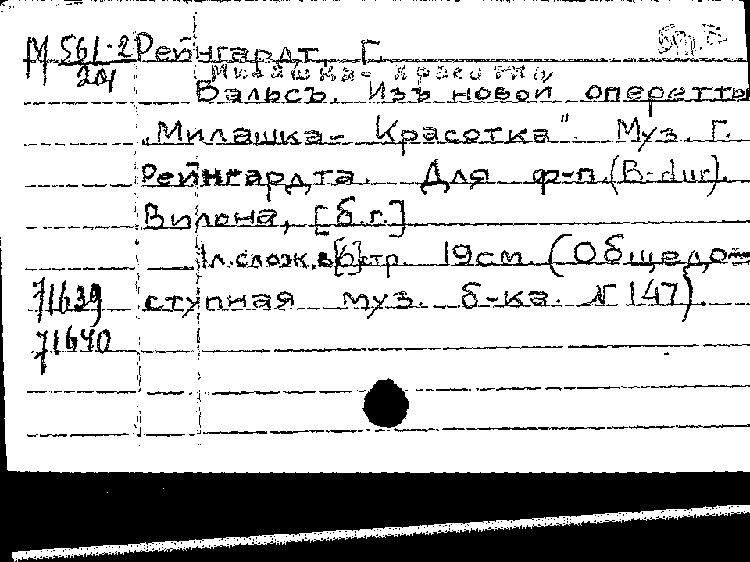 М 561-2 Рейнгардт, Г.
204 Милашка-красотка
Вальсъ. Изъ новой оперетты
„Милашка-Красотка". Муз. Г.
Рейнгардта. Для ф-п. (B-dur).
Вильна, [б.г.]
1л.слож.в[6]стр. 19см. (Общедо=
71639 ступная муз. б-ка. N 147).
71640